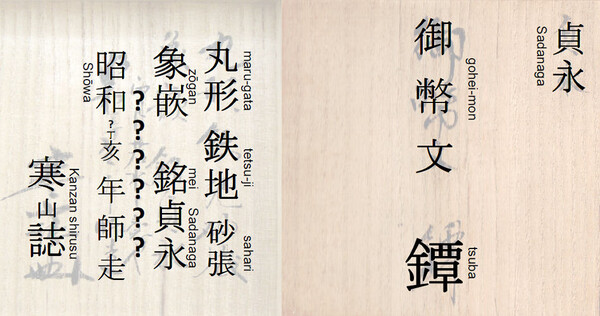 貞永
Sadanaga
御幣文 鐔
gohei-mon tsuba
丸形 鉄地 砂張
maru-gata tetsu-ji sahari
象嵌 銘貞永
zōgan mei Sadanaga
???????
昭和?丁亥年師走
Shōwa
寒山誌
Kanzan shirusu